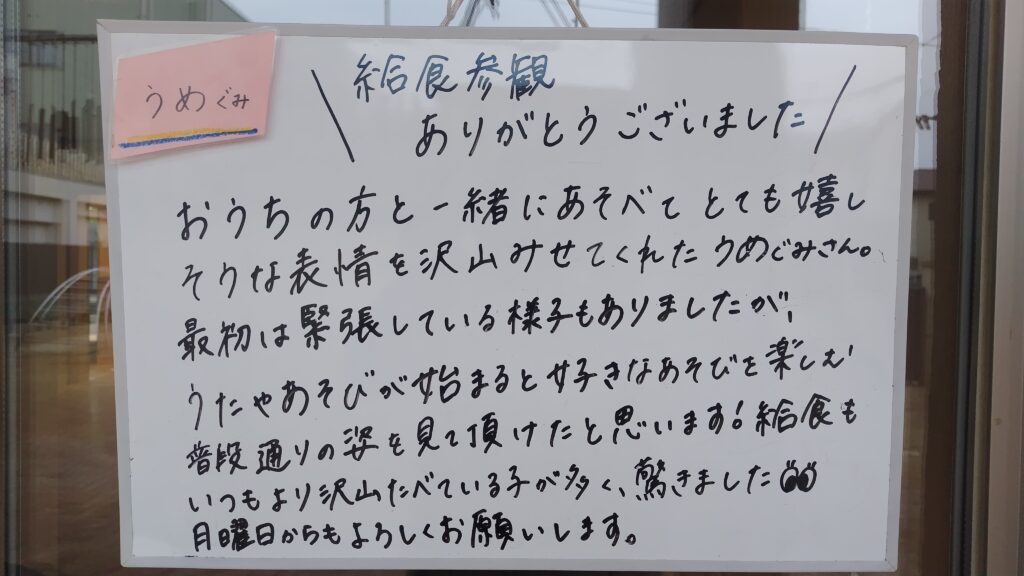 うめぐみ
給食参観
ありがとうございました
おうちの方と一緒にあそべて とても嬉し
そうな表情を沢山みせてくれたうめぐみさん。
最初は緊張している様子もありましたが、
うたやあそびが始まると好きなあそびを楽しむ
普段通りの姿を見て頂けたと思います!給食も
いつもより沢山たべている子が多く、驚きました
月曜日からもよろしくお願いします。